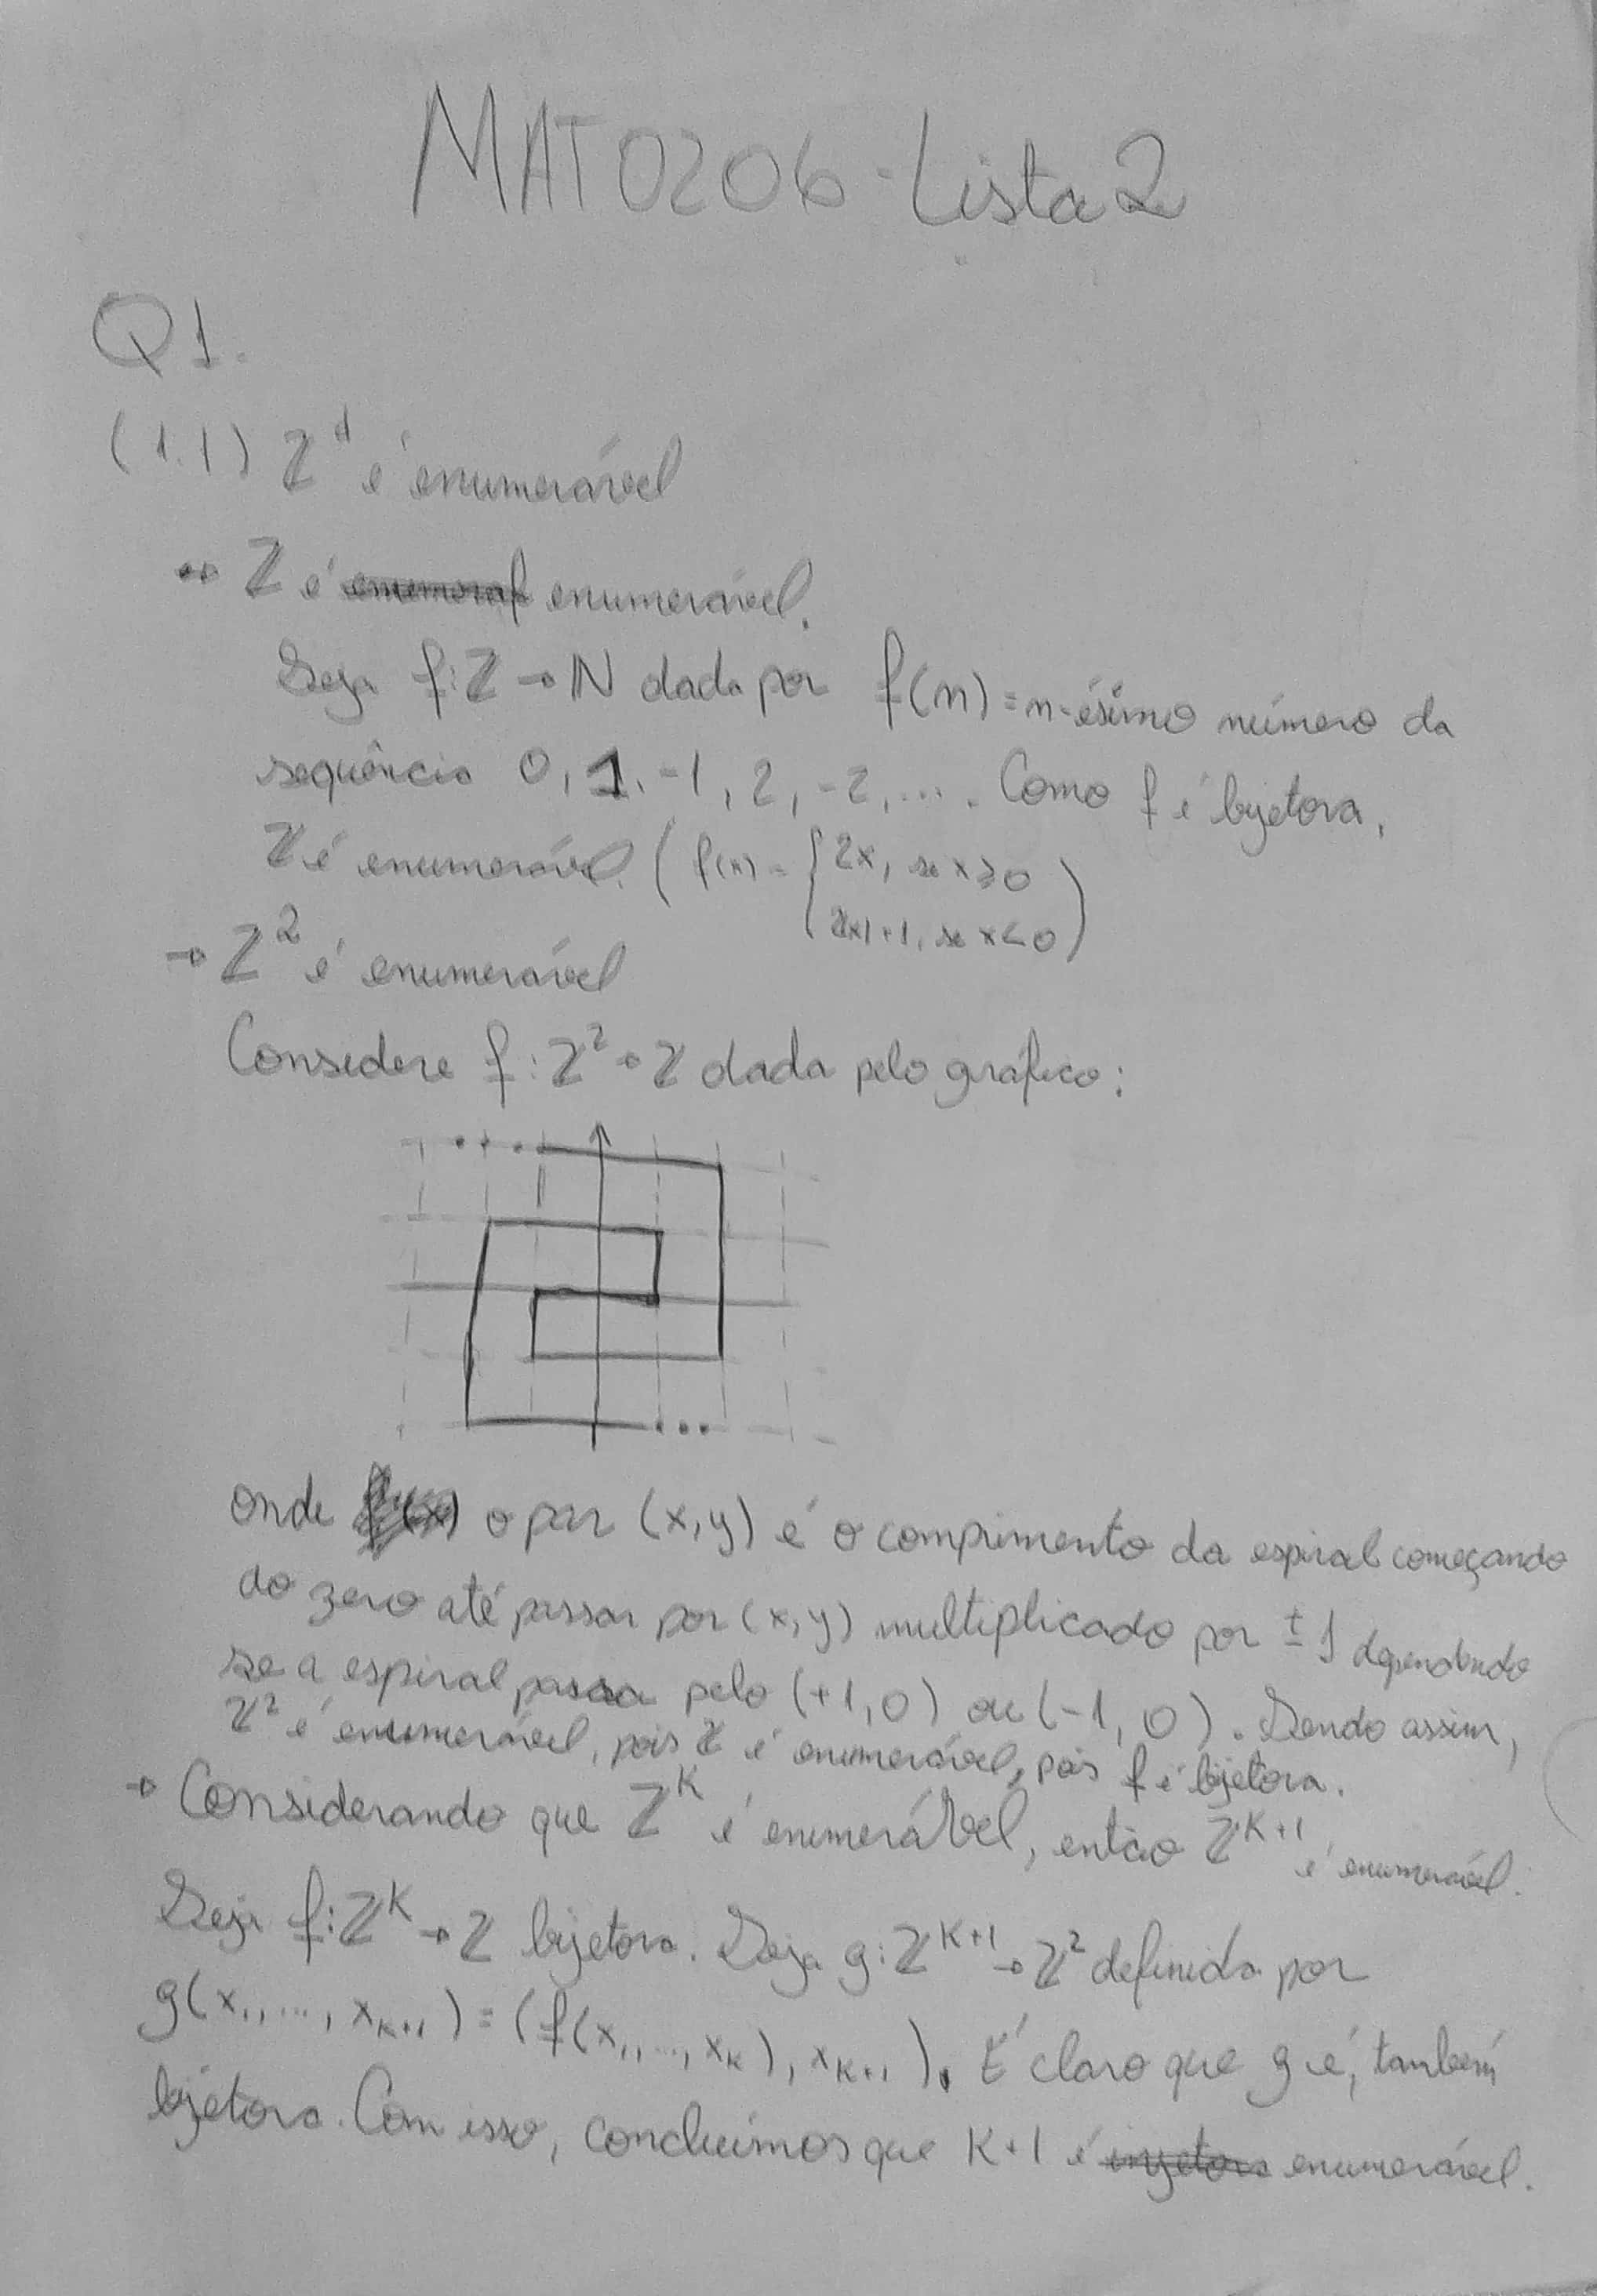 MAT0206 - Lista 2
Q1.
(1.1) ℤᵈ é enumerável
→ ℤ é enumerável.
Seja f: ℤ → ℕ dada por f(n) = n-ésimo número da
sequência 0, 1, -1, 2, -2, .... Como f é bijetora,
ℤ é enumerável. (f(x) = { 2x, se x ≥ 0
2|x|+1, se x < 0)
→ ℤ² é enumerável
Considere f: ℤ² → ℤ dada pelo gráfico:
onde o par (x,y) é o comprimento da espiral começando
do zero até passar por (x,y) multiplicado por ±1 dependendo
se a espiral passa pelo (+1,0) ou (-1,0). Sendo assim,
ℤ² é enumerável, pois ℤ é enumerável, pois f é bijetora.
→ Considerando que ℤᴷ é enumerável, então ℤᴷ⁺¹ é enumerável.
Seja f: ℤᴷ → ℤ bijetora. Seja g: ℤᴷ⁺¹ → ℤ² definida por
g(x₁, ..., xₖ₊₁) = (f(x₁, ..., xₖ), xₖ₊₁). É claro que g é, também
bijetora. Com isso, concluímos que K+1 é enumerável.